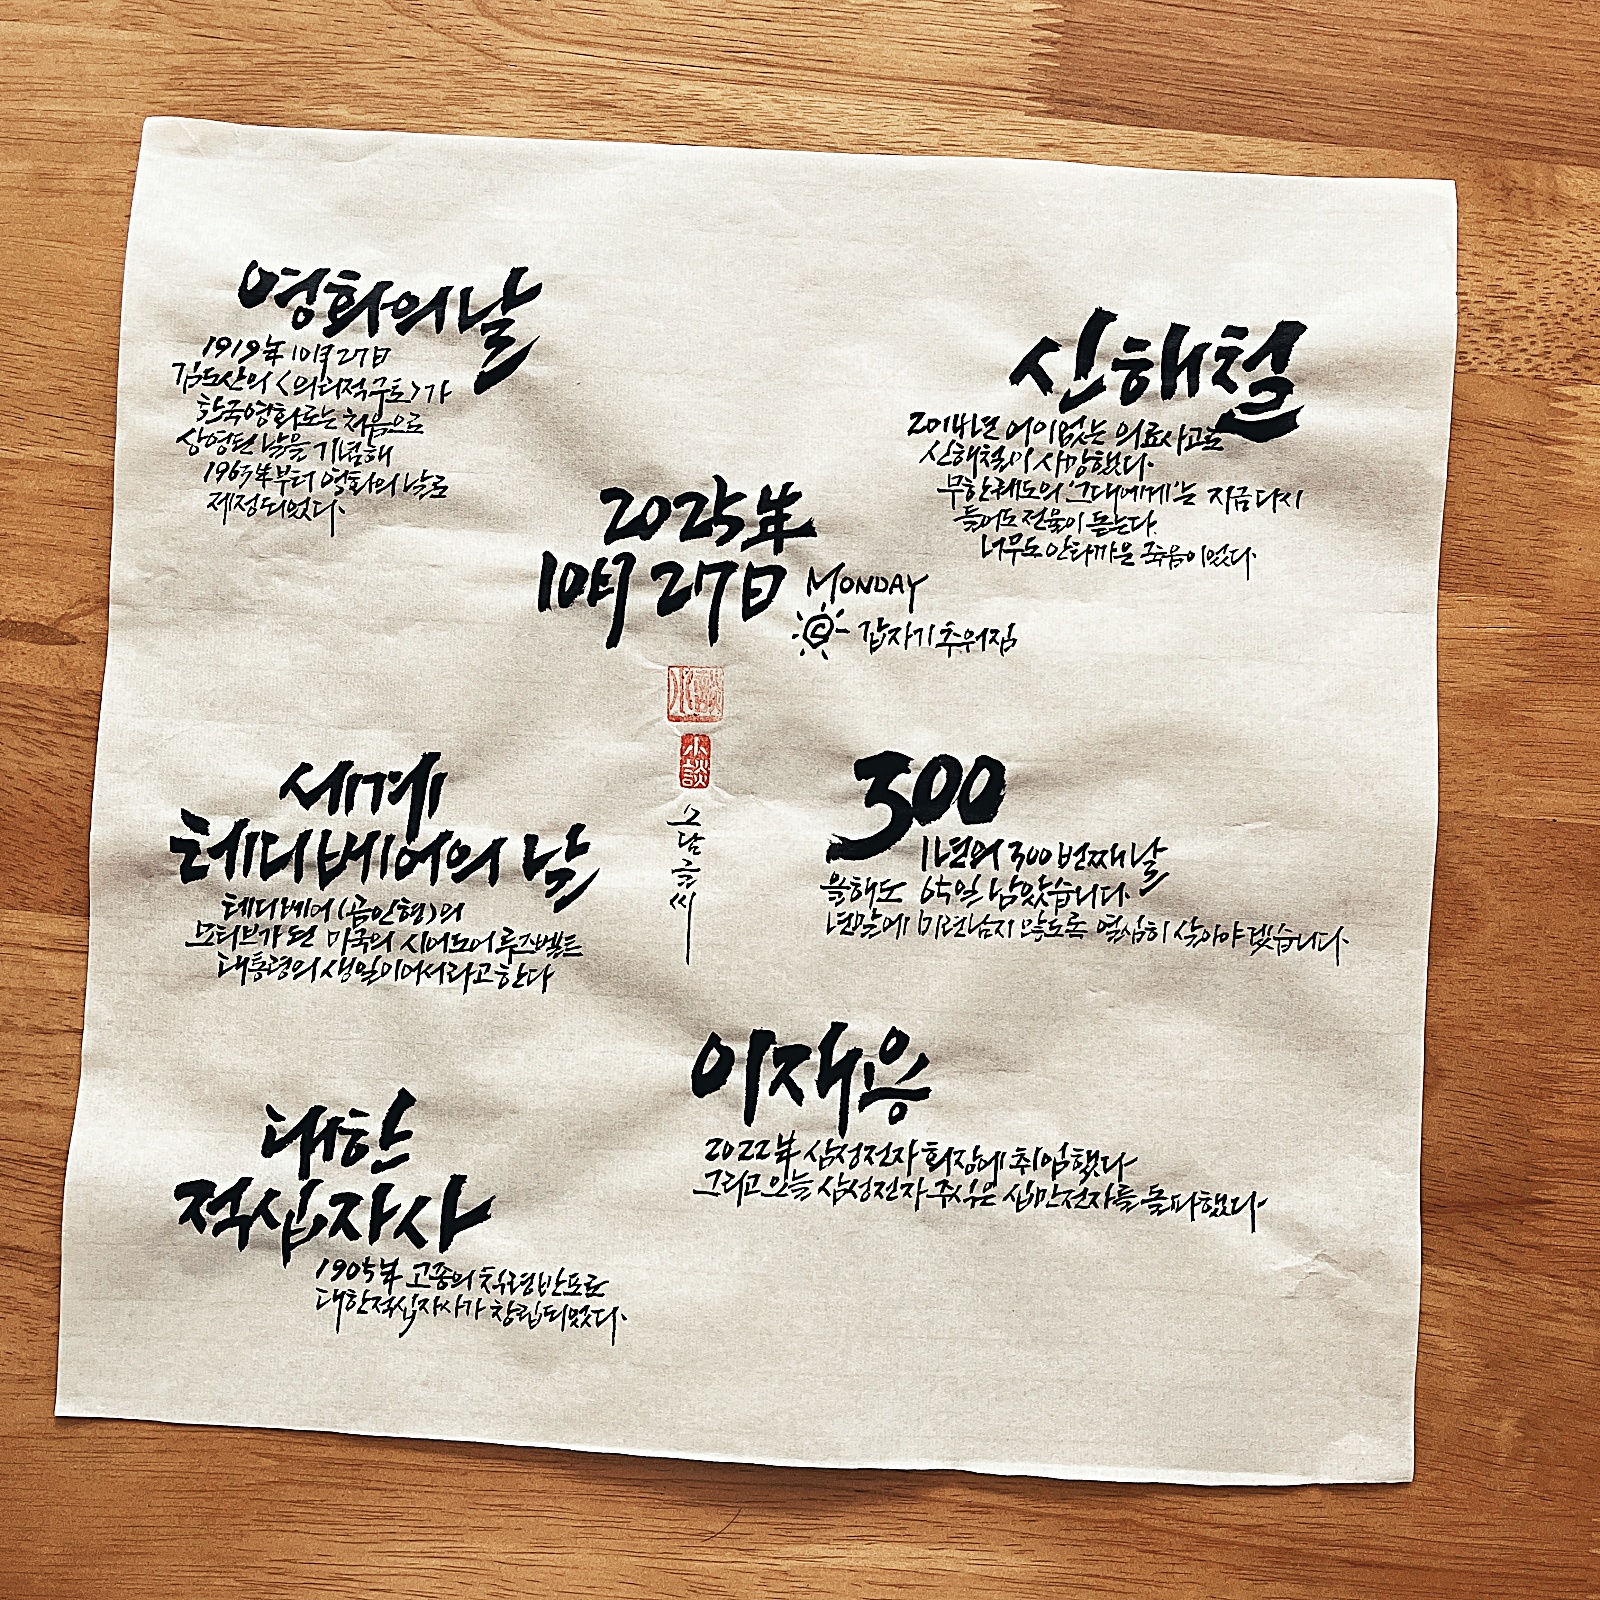 영화의 날
1919年 10月 27日
김도산의 <의리적구토>가
한국영화로는 처음으로
상영된 날을 기념해
1963年부터 영화의 날로
제정되었다.
신해철
2014년 어이없는 의료사고로
신해철이 사망했다.
무한궤도의 '그대에게'는 지금 다시
들어도 전율이 돋는다.
너무도 안타까운 죽음이었다.
2025年
10月 27日 MONDAY
갑자기 추워짐
小談
소담글씨
세계
테디베어의 날
테디베어(곰인형)의
모티브가 된 미국의 시어도어 루즈벨트
대통령의 생일이어서라고 한다
300
1년의 300번째 날
올해도 65일 남았습니다.
년말에 미련남지 않도록 열심히 살아야겠습니다.
이재용
2022年 삼성전자 회장에 취임했다
그리고 오늘 삼성전자 주식은 십만전자를 돌파했다.
대한
적십자사
1905年 고종의 칙령반포로
대한적십자사가 창립되었다.